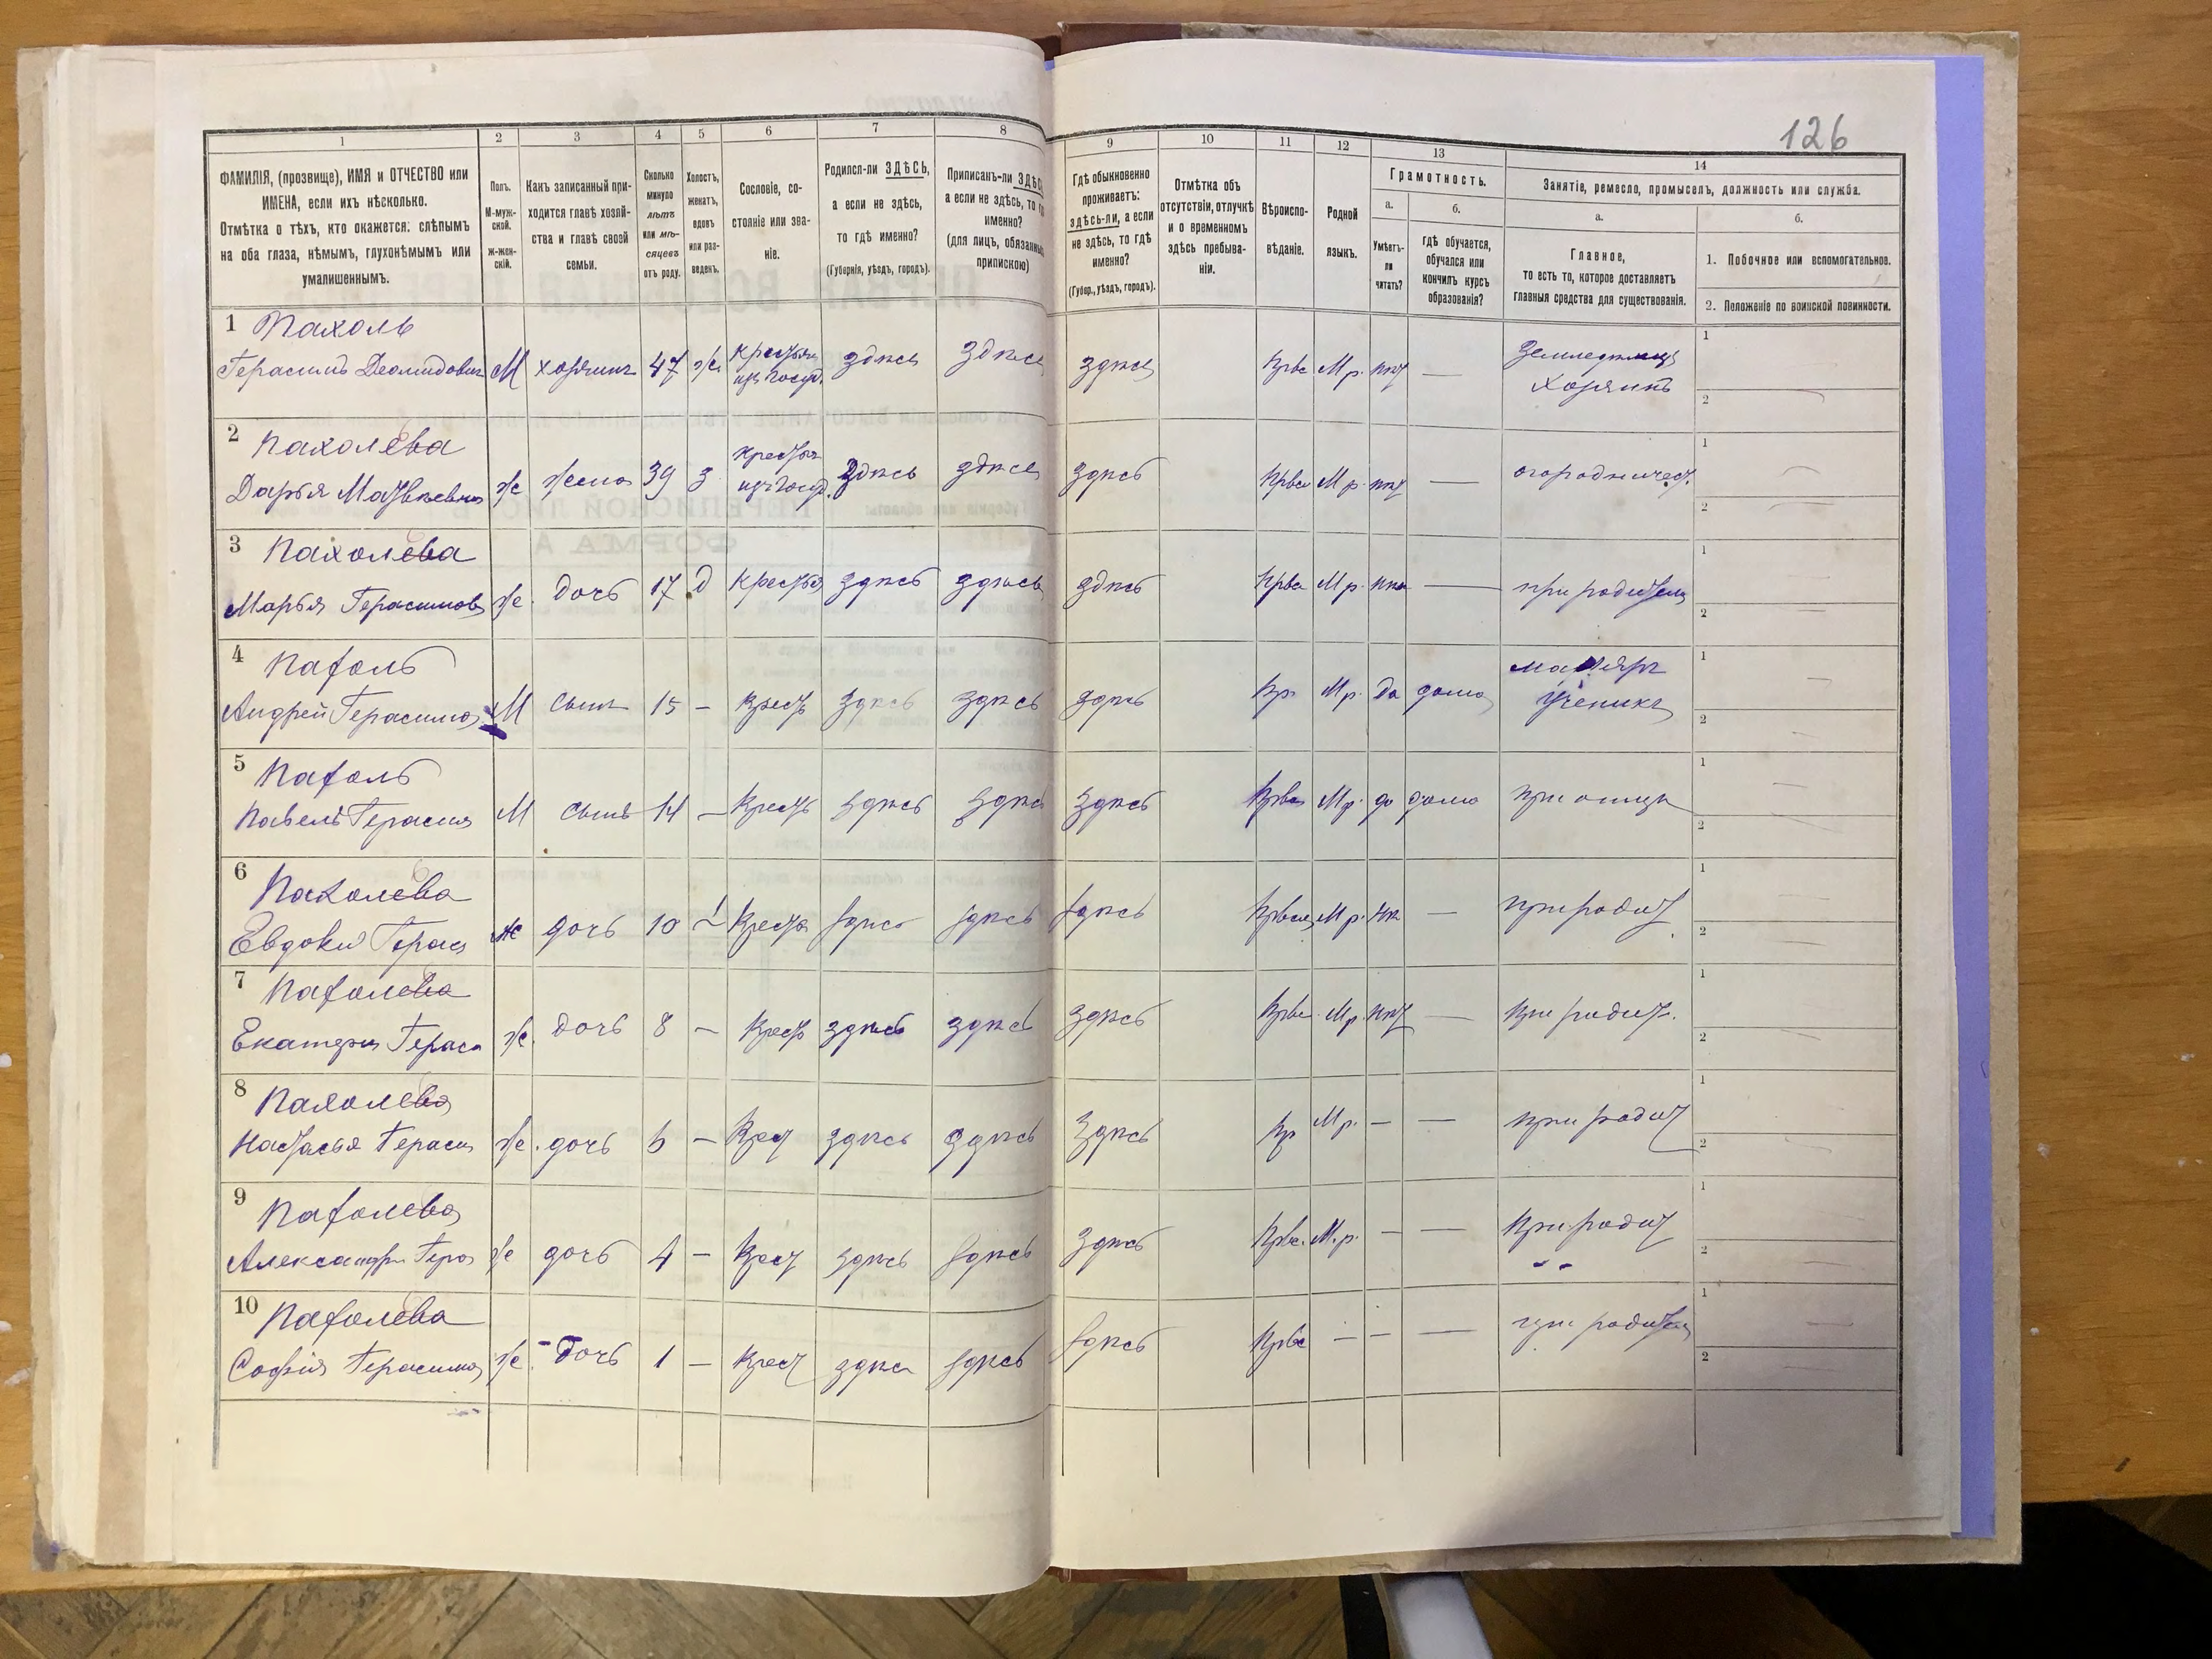 126
1
2
3
4
5
6
7
8
9
10
11
12
13
14
ФАМИЛІЯ, (прозвище), ИМЯ и ОТЧЕСТВО или
ИМЕНА, если ихъ нѣсколько.
Отмѣтка о тѣхъ, кто окажется: слѣпымъ
на оба глаза, нѣмымъ, глухонѣмымъ или
умалишеннымъ.
Полъ.
М-муж-
ской.
ж-жен-
скій.
Какъ записанный при-
ходится главѣ хозяй-
ства и главѣ своей
семьи.
Сколько
минуло
лѣтъ
или мѣ-
сяцевъ
отъ роду.
Холостъ,
женатъ,
вдовъ
или раз-
веденъ.
Сословіе, со-
стояніе или зва-
ніе.
Родился-ли ЗДѢСЬ,
а если не здѣсь,
то гдѣ именно?
(Губернія, уѣздъ, городъ).
Приписанъ-ли ЗДѢС
а если не здѣсь, то
именно?
(для лицъ, обязанны
припискою)
Гдѣ обыкновенно
проживаетъ:
здѣсь-ли, а если
не здѣсь, то гдѣ
именно?
(Губер., уѣздъ, городъ).
Отмѣтка объ
отсутствіи, отлучкѣ
и о временномъ
здѣсь пребыва-
ніи.
Вѣроиспо-
вѣданіе.
Родной
языкъ.
Грамотность.
а.
Умѣетъ-
ли
читать?
б.
гдѣ обучается,
обучался или
кончилъ курсъ
образованія?
Занятіе, ремесло, промыселъ, должность или служба.
а.
Главное,
то есть то, которое доставляетъ
главныя средства для существованія.
б.
1. Побочное или вспомогательное.
2. Положеніе по воинской повинности.
1 Пахоль
Герасимъ Деомидович М хозяинъ 47 ж. крестьян из госуд. здѣсь здѣсь здѣсь Прав М.р. нѣт —
Хозяинъ
2 Пахолева
Дарья Матвѣевна ж жена 39 З крестьян из госуд. Здѣсь здѣсь здѣсь Прав М.р. нѣт — огородничест.
3 Пахолева
Марья Герасимов ж. дочь 17 Д Крестья здѣсь здѣсь здѣсь Прав М.р. — при родителя
4 Пахоль
Андрей Герасимо М сынъ 15 — Крест здѣсь здѣсь здѣсь Пр. М.р. да дома
ученикъ
5 Пахоль
Павелъ Герасим М сынъ 14 — Крест здѣсь здѣсь здѣсь Прав М.р. да дома при отцѣ
6 Пахолева
Евдоки Герас ж дочь 10 Крестя здѣсь здѣсь здѣсь М.р. нѣ — при родит
7 Пахолева
Екатери Гераси ж. дочь 8 — Крест здѣсь здѣсь здѣсь Прав. М.р. нѣт — При родит.
8 Пахолева
Настасья Гераси ж. дочь 6 — Крест здѣсь здѣсь здѣсь Пр М.р. — — при родит
9 Пахолева
Александри Гера ж дочь 4 — Крест здѣсь здѣсь здѣсь Прав. М.р. — — При родит
10 Пахолева
Софія Герасимо ж. дочь 1 — Крест здѣсь здѣсь здѣсь Прав — — — при родител